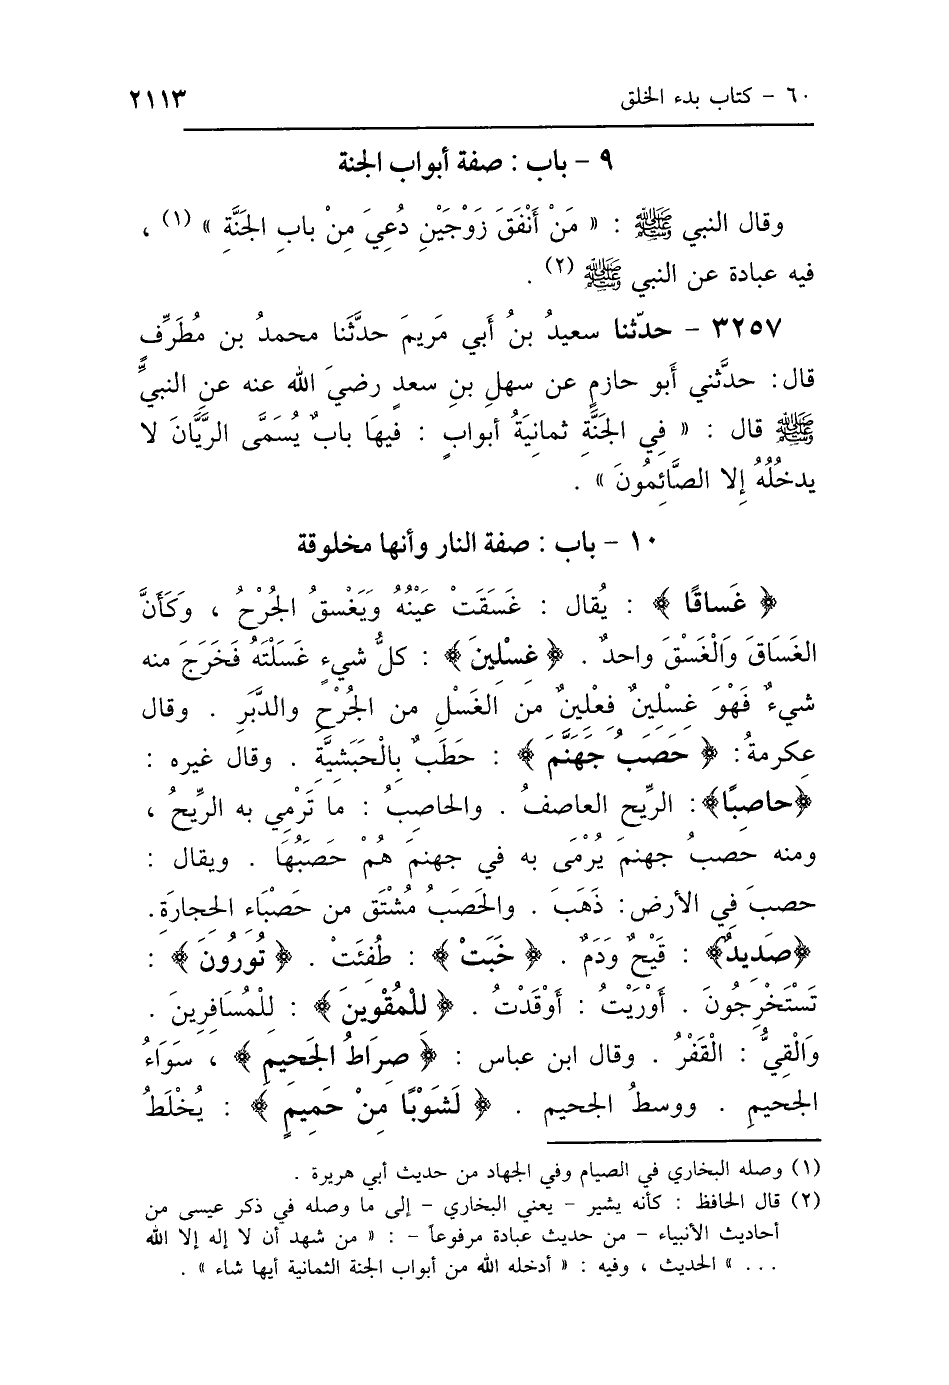 ٦٠ - كتاب بدء الخلق ٢١١٣
٩ - باب : صفة أبواب الجنة
وقال النبي ﷺ : « مَنْ أَنْفَقَ زَوْجَيْنِ دُعِيَ مِنْ بابِ الجَنَّةِ » (١) ،
فيه عبادة عن النبي ﷺ (٢) .
٣٢٥٧ - حدّثنا سعيدُ بنُ أَبي مَريمَ حدَّثَنا محمدُ بن مُطَرِّفٍ
قال: حدَّثني أَبو حازمٍ عن سهلِ بنِ سعدٍ رضيَ الله عنه عنِ النبيِّ
ﷺ قال : « فِي الجَنَّةِ ثمانيَةُ أبوابٍ : فيهَا بابٌ يُسَمَّى الرَّيَّانَ لا
يدخُلُهُ إِلا الصَّائِمُونَ » .
١٠ - باب : صفة النار وأنها مخلوقة
﴿ غَساقًا ﴾ : يُقال : غَسَقَتْ عَيْنُهُ وَيَغْسقُ الجُرْحُ ، وَكَأَنَّ
الغَسَاقَ وَالْغَسْقَ واحدٌ . ﴿ غسْلينَ ﴾ : كلُّ شيءٍ غَسَلْتَهُ فَخَرَجَ منه
شيءٌ فَهْوَ غِسْلِينٌ فعْلِينٌ من الغَسْلِ من الجُرْحِ والدَّبَرِ . وقال
عكرمةُ: ﴿ حَصَبُ جَهَنَّمَ ﴾ : حَطَبٌ بِالْحَبَشيَّةِ . وقال غيره :
﴿حاصبًا﴾: الرِّيح العاصفُ . والحاصبُ : ما تَرْمِي به الرِّيحُ ،
ومنه حصبُ جهنمَ يُرْمَى به في جهنمَ هُمْ حَصَبُهَا . ويقال :
حصبَ فِي الأرض: ذَهَبَ . والحَصَبُ مُشْتَق من حَصْبَاء الحجارَةِ.
﴿صَديدٌ﴾ : قَيْحٌ وَدَمٌ . ﴿ خَبَتْ ﴾ : طُفئَتْ . ﴿ تُورُونَ ﴾ :
تَسْتَخْرِجُونَ . أَوْرَيْتُ : أَوْقَدْتُ . ﴿ للْمُقْوينَ ﴾ : للْمُسَافِرِينَ .
وَالْقِيُّ : الْقَفْرُ . وقال ابن عباس : ﴿ صرَاطُ الجَحيمِ ﴾ ، سَوَاءُ
الجحيمِ . ووسطُ الجحيم . ﴿ لَشَوْبًا مِنْ حَميمٍ ﴾ : يُخْلَطُ
(١) وصله البخاري في الصيام وفي الجهاد من حديث أبي هريرة .
(٢) قال الحافظ : كأنه يشير - يعني البخاري - إلى ما وصله في ذكر عيسى من
أحاديث الأنبياء - من حديث عبادة مرفوعاً - : « من شهد أن لا إله إلا الله
... » الحديث ، وفيه : « أدخله الله من أبواب الجنة الثمانية أيها شاء » .